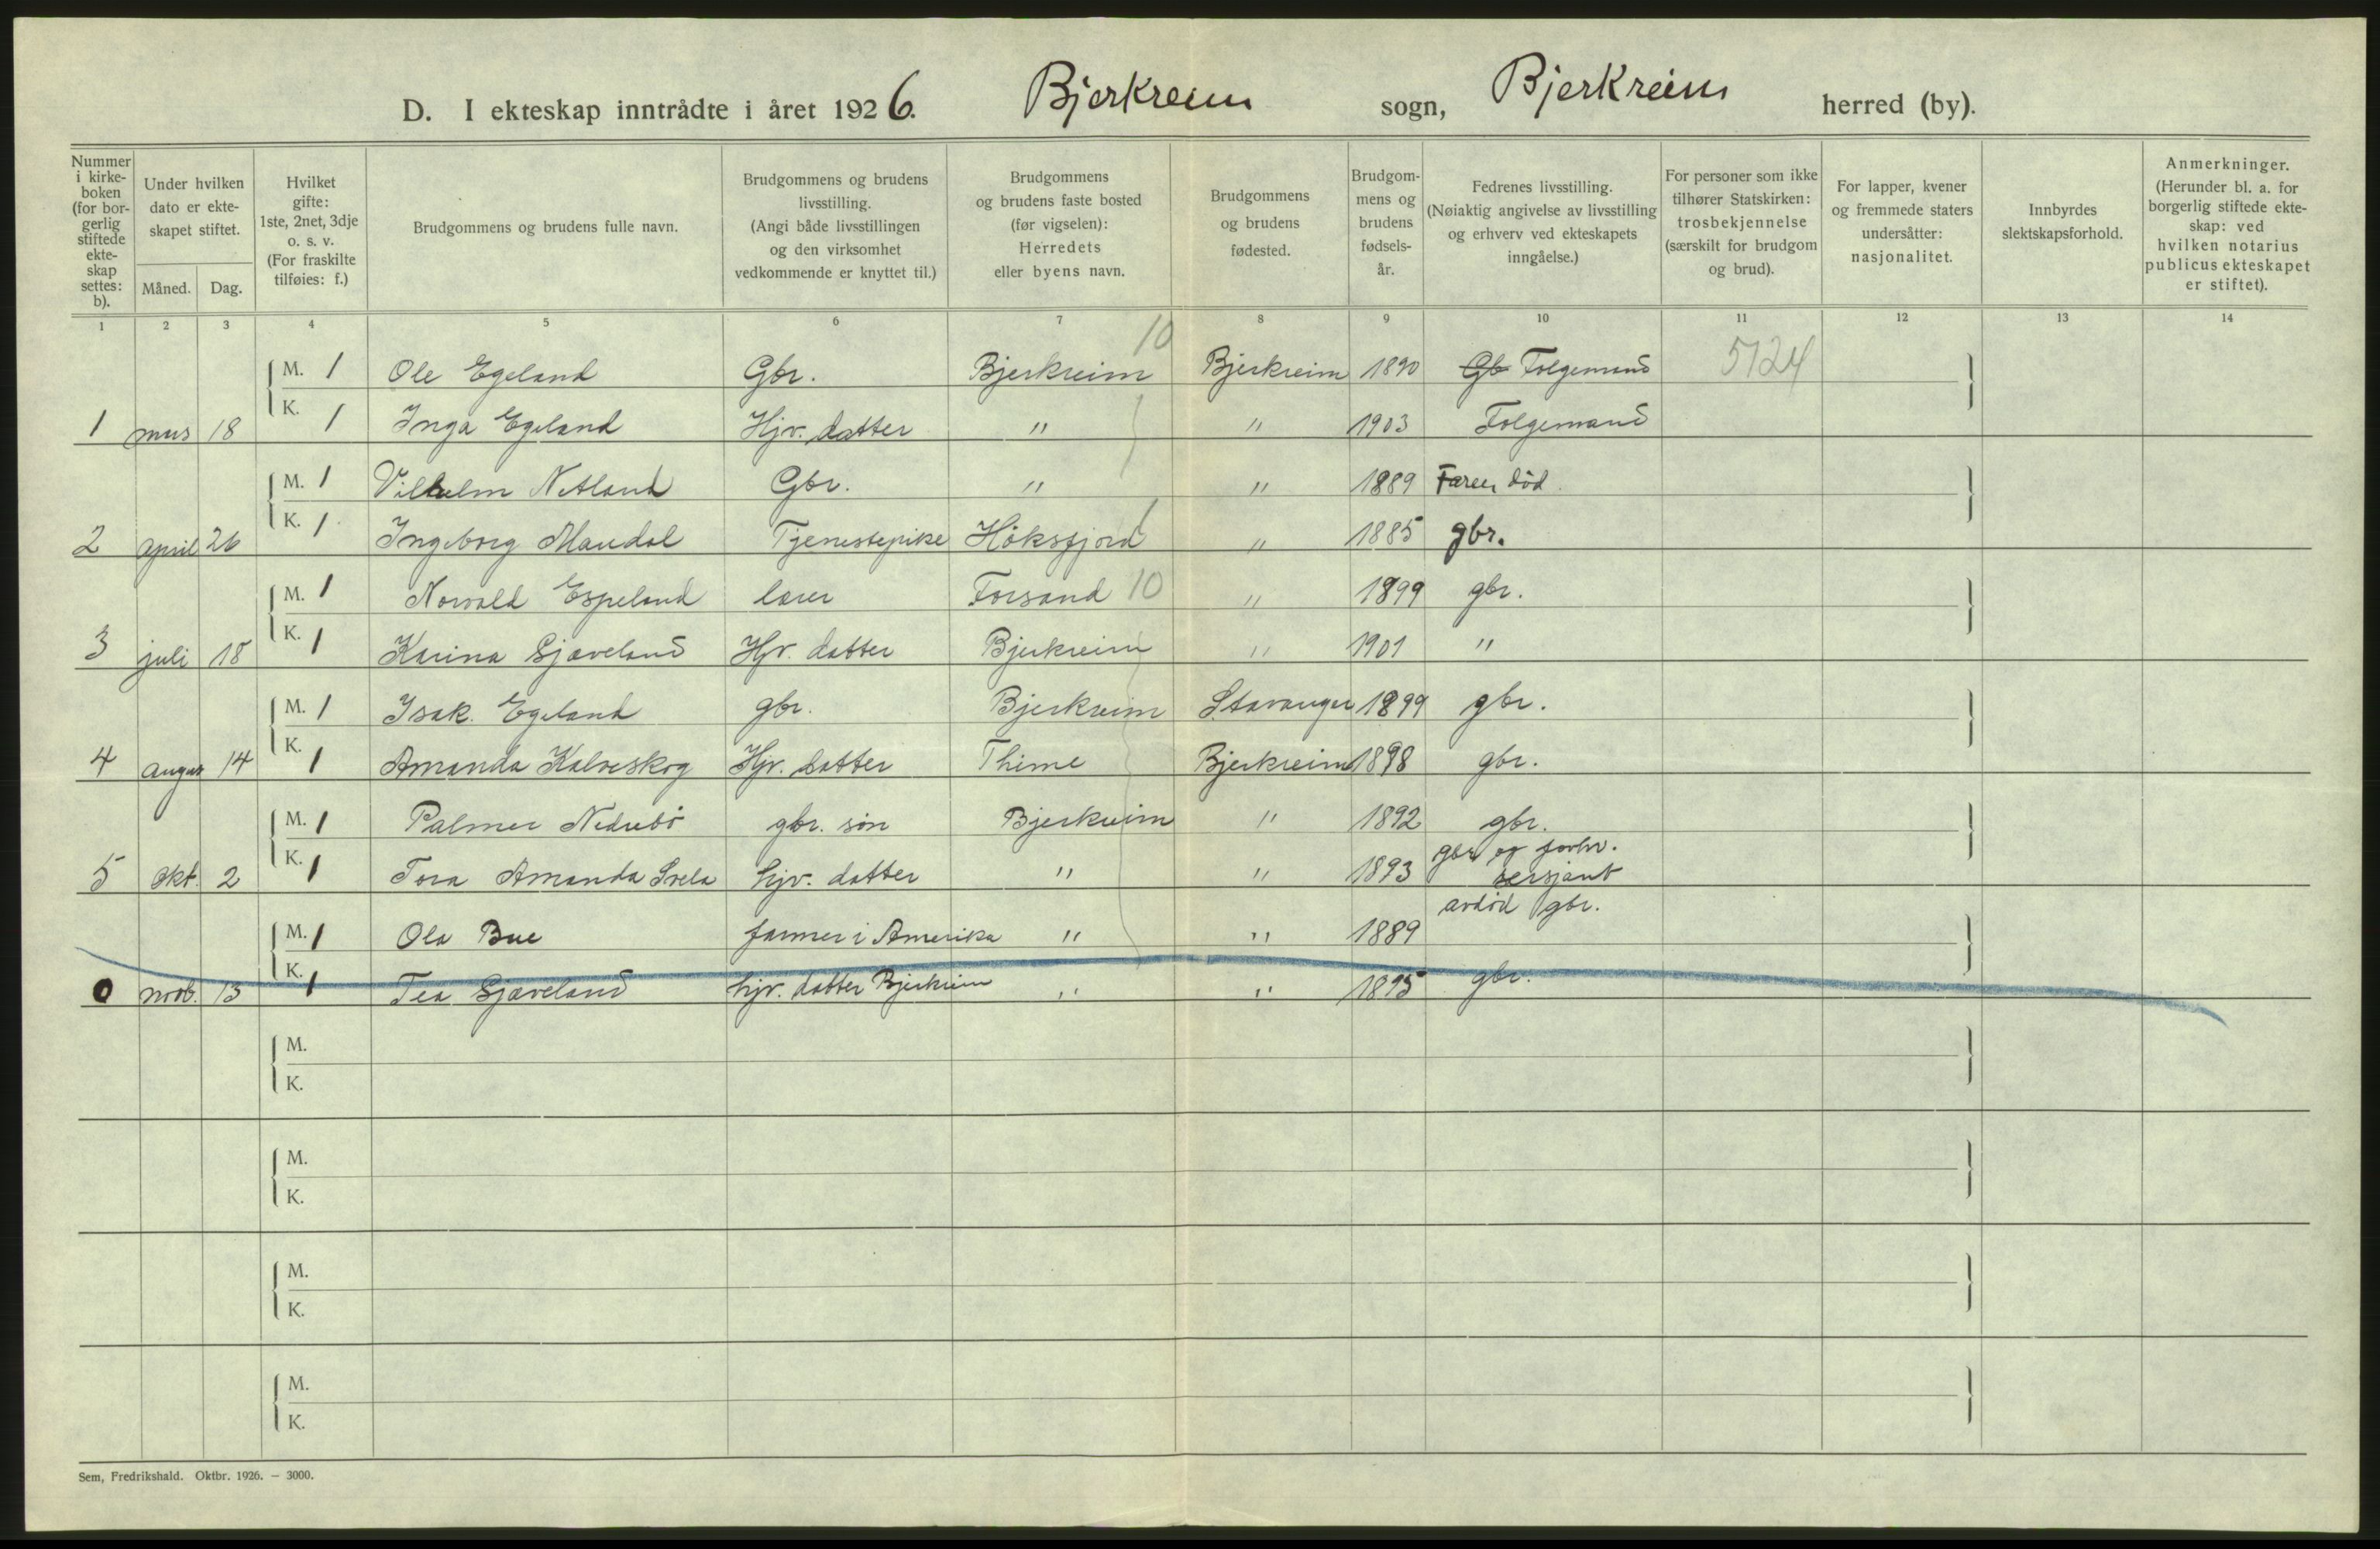 D. I ekteskap inntrådte i året 1926. Bjerkreim sogn, Bjerkreim herred (by).
Nummer i kirke-boken (for bor-gerlig stiftede ekte-skap settes: b).
Under hvilken dato er ekte-skapet stiftet.
Måned. Dag.
Hvilket gifte: 1ste, 2net, 3dje o. s. v. (For fraskilte tilføies: f.)
Brudgommens og brudens fulle navn.
Brudgommens og brudens livsstilling. (Angi både livsstillingen og den virksomhet vedkommende er knyttet til.)
Brudgommens og brudens faste bosted (før vigselen): Herredets eller byens navn.
Brudgommens og brudens fødested.
Brudgom-mens og brudens fødsels-år.
Fedrenes livsstilling. (Nøiaktig angivelse av livsstilling og erhverv ved ekteskapets inngåelse.)
For personer som ikke tilhører Statskirken: trosbekjennelse (særskilt for brudgom og brud).
For lapper, kvener og fremmede staters undersåtter: nasjonalitet.
Innbyrdes slektskapsforhold.
Anmerkninger. (Herunder bl. a. for borgerlig stiftede ekte-skap: ved hvilken notarius publicus ekteskapet er stiftet).
1 2 3 4 5 6 7 8 9 10 11 12 13 14
10
M. 1 Ole Egeland Gbr. Bjerkreim Bjerkreim 1890 Gb Folgemand 5124
1 mars 18 K. 1 Inga Egeland Hjv. datter " " 1903 Folgemand
M. 1 Vilhelm Netland Gbr. " " 1889 Faren død.
2 april 26 K. 1 Ingeborg Maudal Tjenestepike Höksfjord " 1885 gbr.
M. 1 Norvald Espeland lærer Forsand 10 " 1899 gbr.
3 juli 18 K. 1 Karina Gjæveland Hjv. datter Bjerkreim " 1901 "
M. 1 Isak Egeland gbr. Bjerkreim Stavanger 1899 gbr.
4 august 14 K. 1 Amanda Kalveskog Hjv. datter Thime Bjerkreim 1898 gbr.
M. 1 Palmer Nedrebö gbr. søn Bjerkreim " 1892 gbr.
5 okt. 2 K. 1 Tora Amanda Svela hjv. datter " " 1893 gbr og forhv. sersjant
M. 1 Ola Bue farmer i Amerika " " 1889 avdød gbr.
0 novb. 13 K. 1 Tea Gjæveland hjv. datter Bjerkreim " " 1895 gbr.
M.
K.
M.
K.
M.
K.
M.
K.
Sem, Fredrikshald. Oktbr. 1926. — 3000.